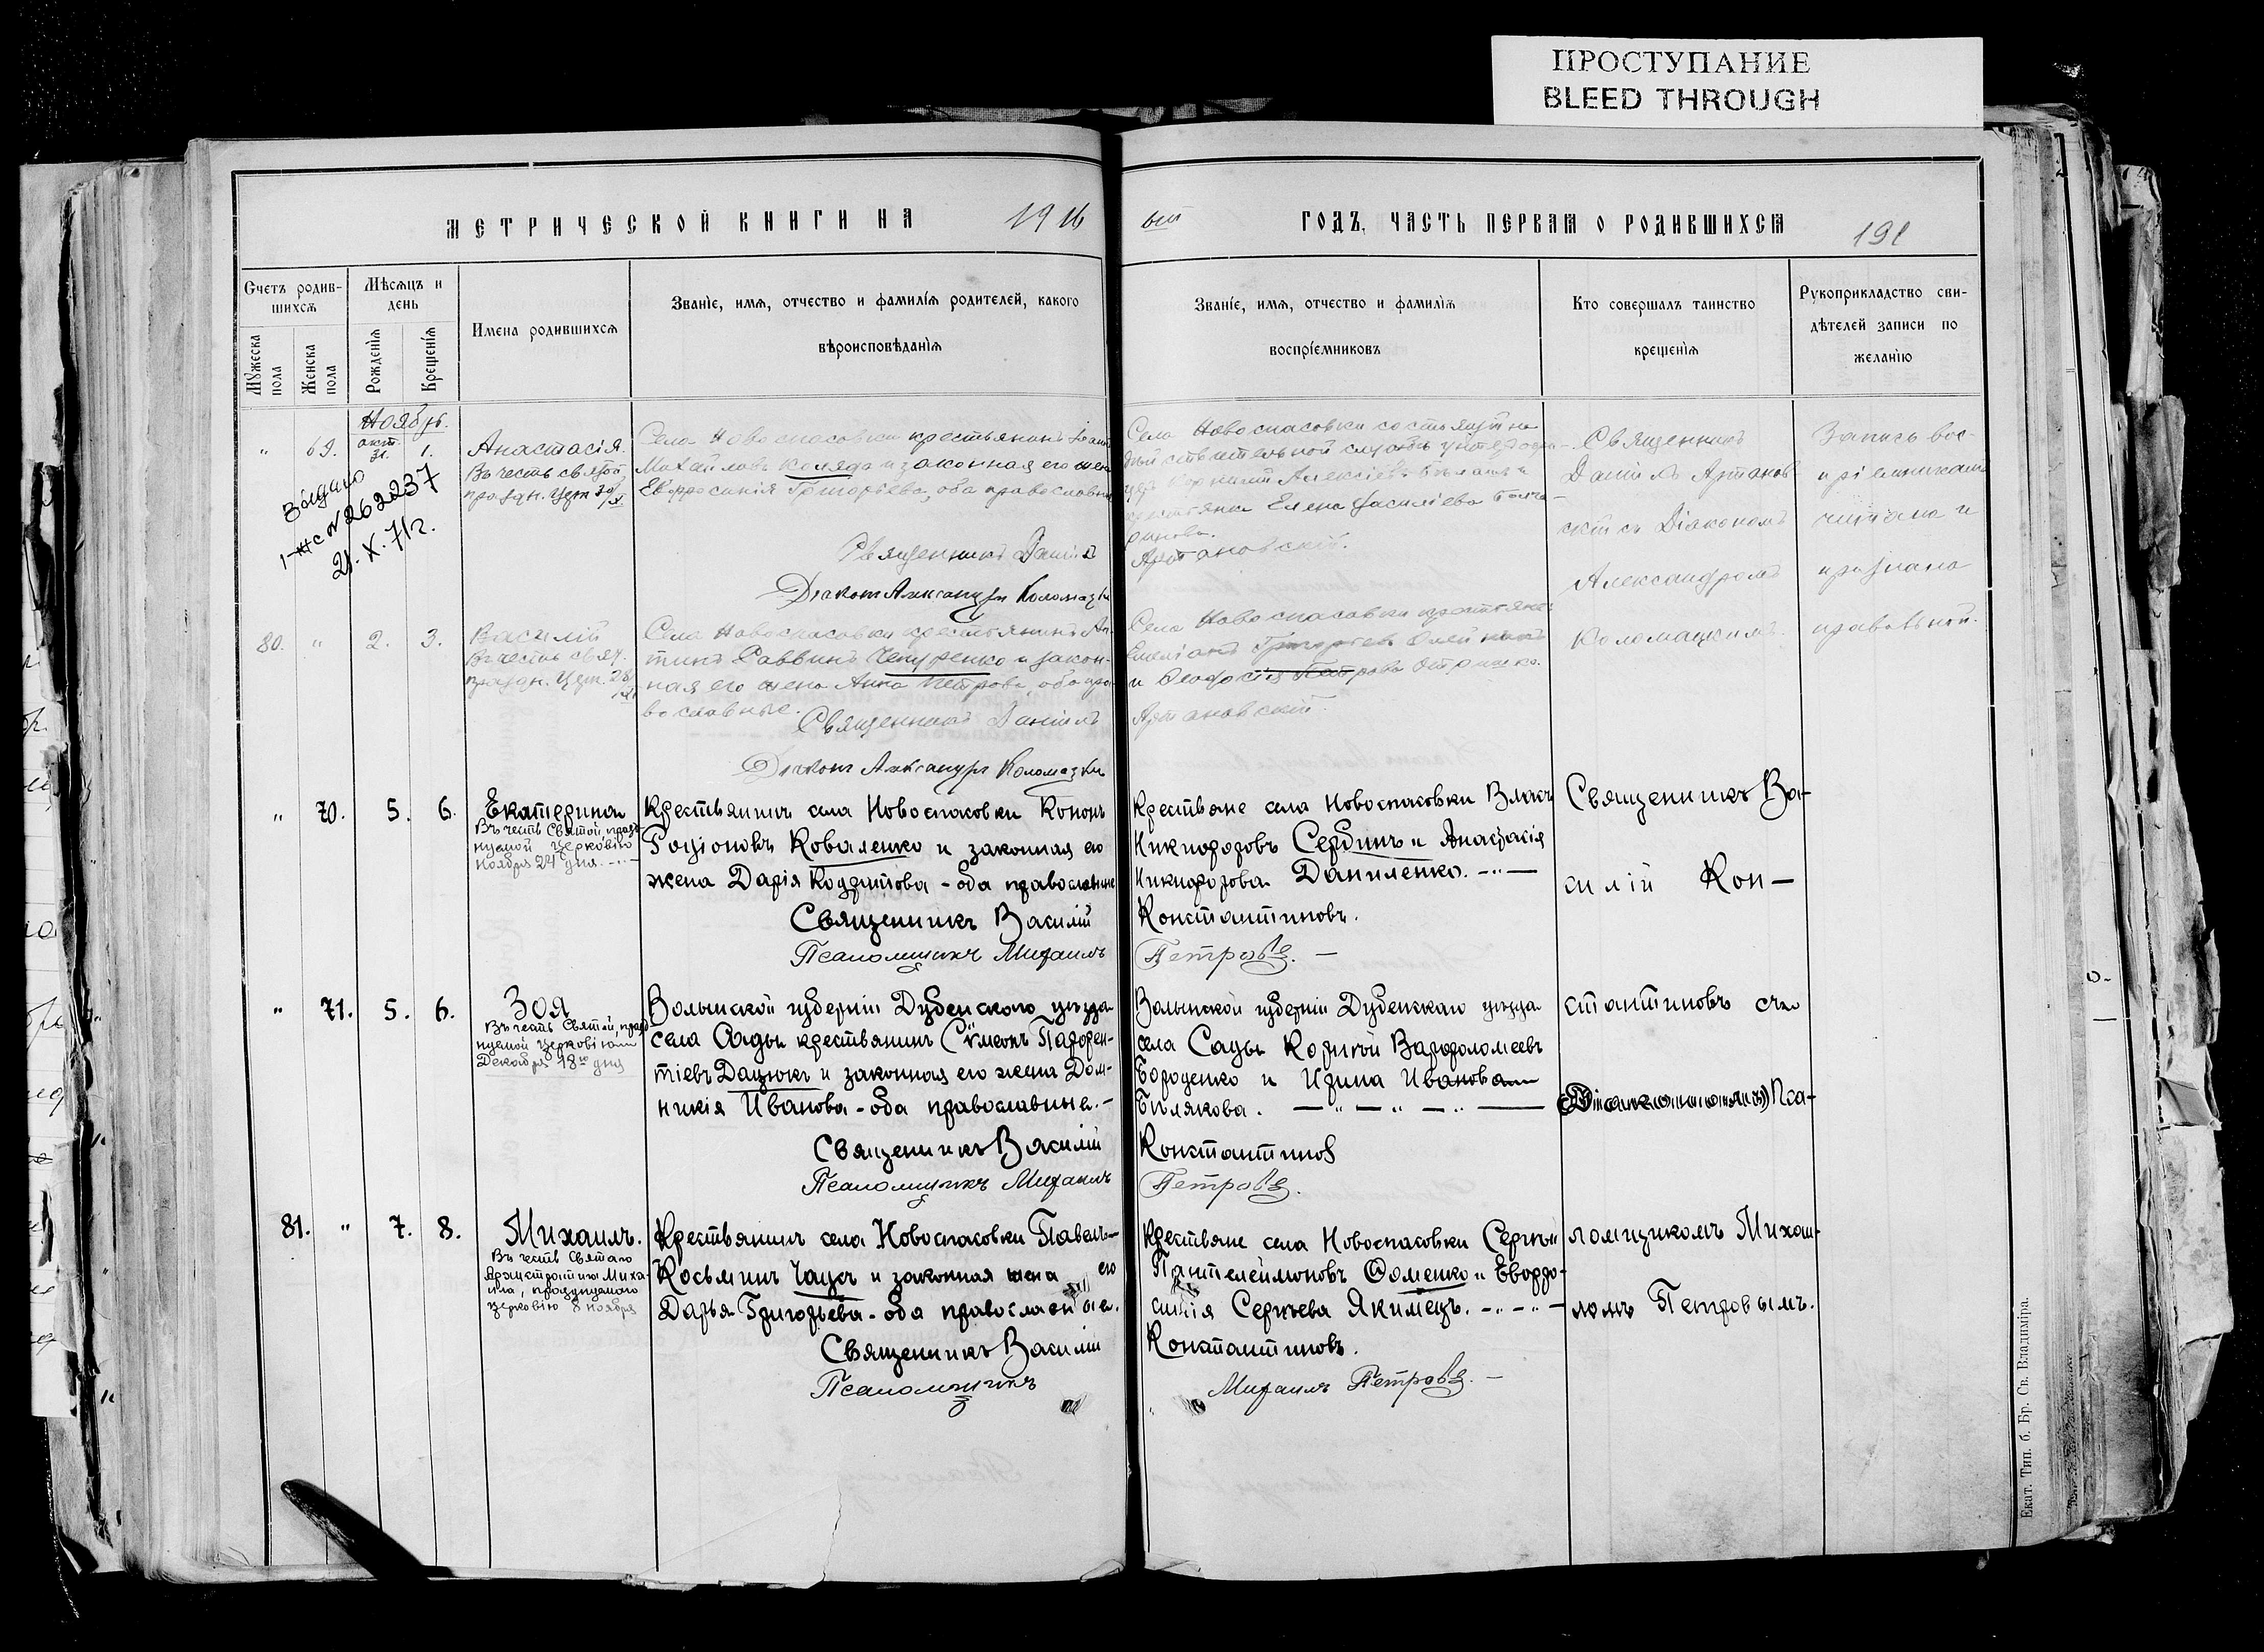 ПРОСТУПАНИЕ
BLEED THROUGH
МЕТРИЧЕСКОЙ КНИГИ НА 1916
ый ГОДЪ, ЧАСТЬ ПЕРВАЯ О РОДИВШИХСЯ
191
Счетъ родив-
шихся
Мужеска пола
Женска пола
Мѣсяцъ и
день
Рожденія
Крещенія
Имена родившихся
Званіе, имя, отчество и фамилія родителей, какого
вѣроисповѣданія
Званіе, имя, отчество и фамилія
воспріемниковъ
Кто совершалъ таинство
крещенія
Рукоприкладство сви-
дѣтелей записи по
желанію
Ноябрь.
" 69. окт. 31. 1.
Анастасія.
Въ честь святой
праздн. Церк.
Села Новоспасовки крестьянинъ
Михайловъ Коляда и законная его жена
Евфросинія Григоріева, оба православные
Священникъ Даніилъ
Діаконъ Александръ Коломацкій
Села Новоспасовки состоящій на
дѣйствительной службѣ
Алексіевъ
крестьянка Елена Василіева
Артановскій.
Священникъ
Даніилъ Артанов
скій съ Діакономъ
Александромъ
Коломацкимъ.
Запись вос-
пріемникамъ
читана и
признана
правильной.
выдано
I-ЖС № 262237
21. X. 71г.
80. " 2. 3.
Василій
Въ честь свят.
праздн. Церк.
Села Новоспасовки крестьянинъ
Саввинъ Чепуренко и закон-
ная его жена Анна Петрова, оба пра-
вославные.
Священникъ Даніилъ
Діаконъ Александръ Коломацкій
Села Новоспасовки крестьяне:
Григоріевъ Олейникъ
и Феодосія Петрова
Артановскій.
" 70. 5. 6.
Екатерина
Въ честь Святой, празд
нуемой церковію
ноября 24 дня.
Крестьянинъ села Новоспасовки Кононъ
Родіоновъ Коваленко и законная его
жена Дарія Кодратова - оба православные
Священникъ Василій
Псаломщикъ Михаилъ
Крестьяне села Новоспасовки Власъ
Никифоровъ Сербинъ и Анастасія
Никифорова Даниленко.
Константиновъ.
Петровъ.
Священникъ Ва-
силій Кон-
" 71. 5. 6.
Зоя
Въ честь Святой, празд
нуемой церковію
Декабря 18го дня
Волынской губерніи Дубенского уѣзда
села Сады крестьянинъ Сѵмеонъ Парфен-
тіевъ Дацюкъ и законная его жена Дом-
никія Иванова - оба православные.
Священникъ Василій
Псаломщикъ Михаилъ
Волынской губерніи Дубенскаго уѣзда
села Сады Корнилій Варфоломеевъ
Бороденко и Ирина Иванова
Билякова.
Константинов
Петровъ.
стантиновъ съ
(Діакономъ) Пса-
81. " 7. 8.
Михаилъ.
Въ честь Святаго
Архистратига Миха-
ила, празднуемаго
церковію 8 ноября
Крестьянинъ села Новоспасовки Павелъ
Косьминъ Чацъ и законная его жена
Дарья Григорьева - оба православные.
Священникъ Василій
Псаломщикъ
Крестьяне села Новоспасовки Сергѣй
Пантелеймоновъ Фоменко и Евфро-
синія Сергѣева Якимецъ.
Константиновъ.
Михаилъ Петровъ.
ломщикомъ Михаи-
ломъ Петровымъ.
Екат. Тип. б. Бр. Св. Владиміра.